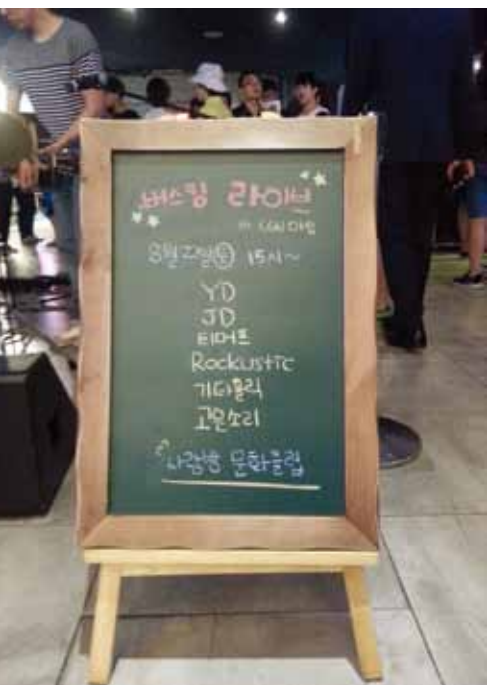 버스킹 라이브
in CGV 야탑
8월22일(토) 15시~
YD
JD
티머트
Rockustic
기타홀릭
고운소리
사랑방 문화클럽